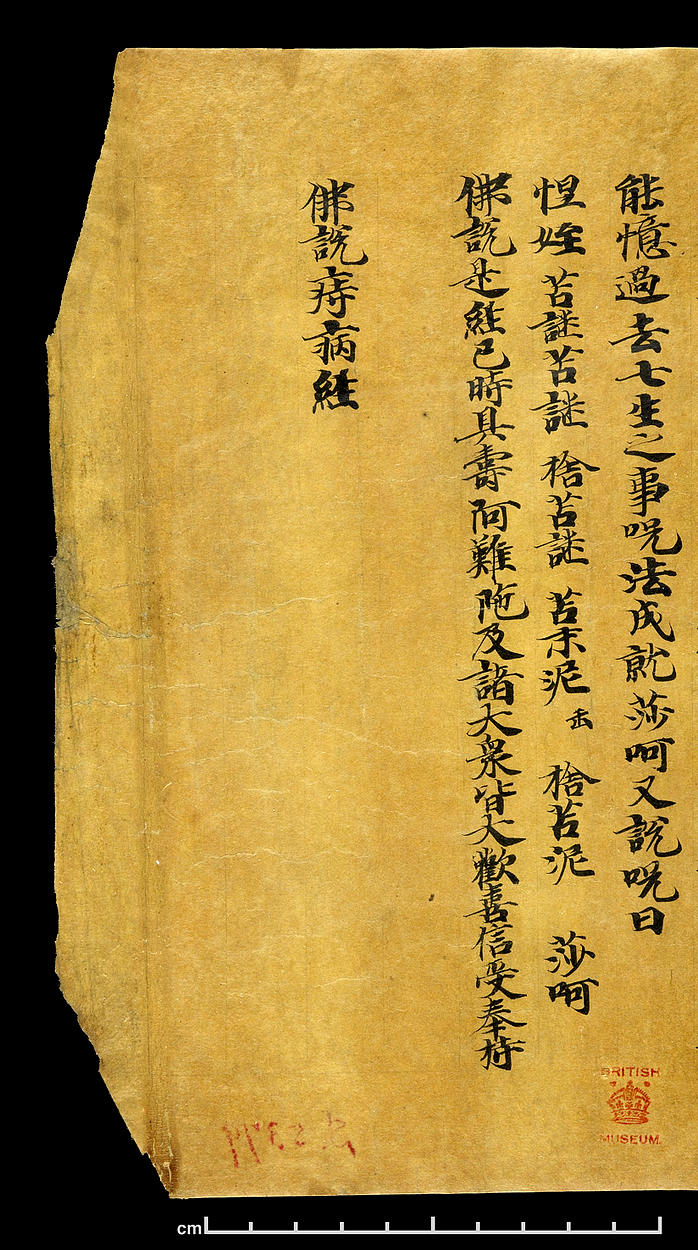 能憶過去七生之事呪法成就莎呵又說呪曰
怛姪 苫謎苫謎 捨苫謎 苫末泥 去 捨苫泥 莎呵
佛說是經已時具壽阿難陁及諸大衆皆大歡喜信受奉持
佛說痔病經
BRITISH
MUSEUM.
cm